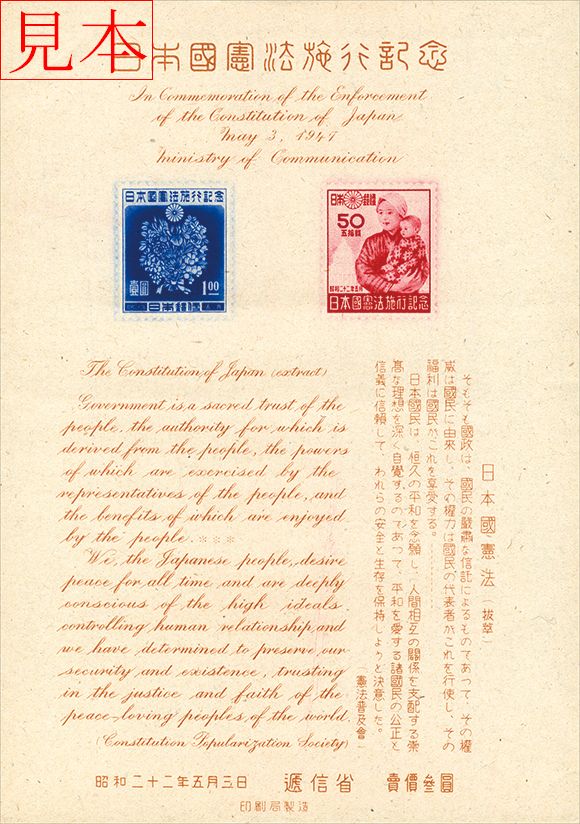 見本
日本國憲法施行記念
In Commemoration of the Enforcement
of the Constitution of Japan
May 3, 1947
Ministry of Communication
日本国憲法施行記念
壹圓
1.00
日本郵便
日本郵便
50
五拾銭
昭和二十二年五月
日本國憲法施行記念
The Constitution of Japan (extract)
Government is a sacred trust of the
people, the authority for which is
derived from the people, the powers
of which are exercised by the
representatives of the people, and
the benefits of which are enjoyed
by the people. ※※※
We, the Japanese people, desire
peace for all time and are deeply
conscious of the high ideals
controlling human relationship, and
we have determined to preserve our
security and existence, trusting
in the justice and faith of the
peace-loving peoples of the world.
(Constitution Popularization Society)
日本國憲法（拔萃）
そもそも國政は、國民の嚴肅な信託によるものであつて、その權
威は國民に由來し、その權力は國民の代表者がこれを行使し、その
福利は國民がこれを享受する。………
日本國民は、恒久の平和を念願し、人間相互の關係を支配する崇
高な理想を深く自覺するのであつて、平和を愛する諸國民の公正と
信義に信頼して、われらの安全と生存を保持しようと決意した。
（憲法普及會）
昭和二十二年五月三日 遞信省 賣價參圓
印刷局製造